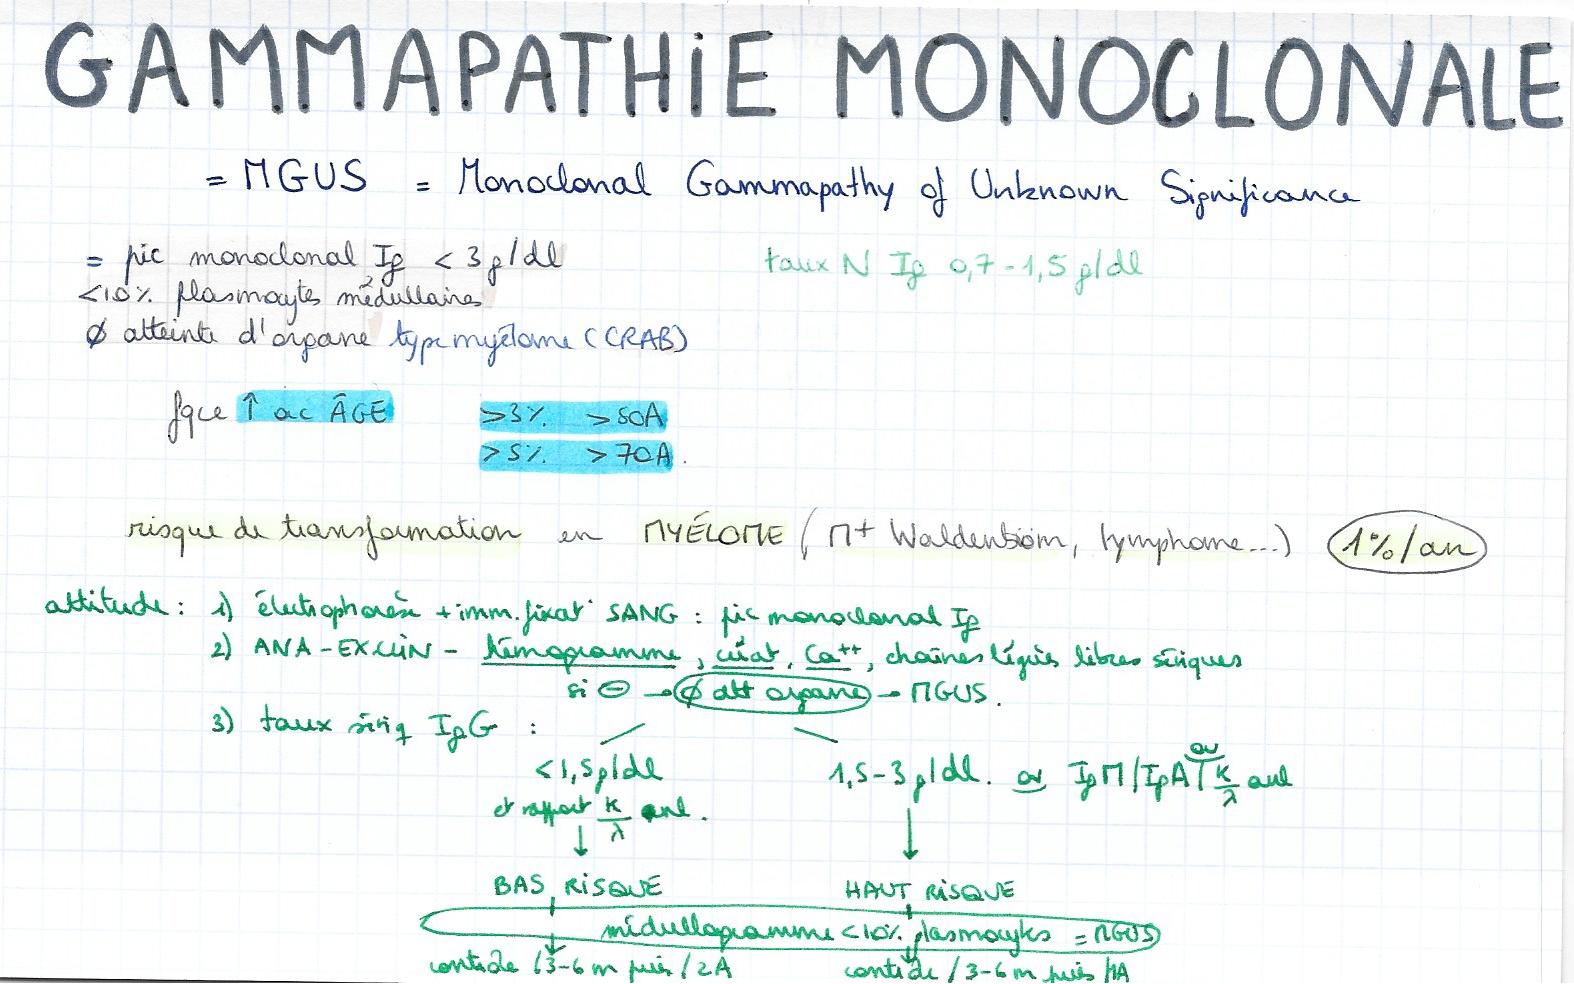 GAMMAPATHiE MONOCLONALE
= MGUS = Monoclonal Gammapathy of Unknown Significance
= pic monoclonal Ig < 3 g/dl
taux N Ig 0,7-1,5 g/dl
<10% plasmocytes médullaires
Ø atteinte d'organe type myélome (CRAB)
fqce ↑ ac ÂGE >3% >50A
>5% >70A.
risque de transformation en MYÉLOME ( M+ Waldenström, lymphome...) 1%/an
attitude : 1) électrophorèse + imm.fixat° SANG : pic monoclonal Ig
2) ANA-EX CLIN - hémogramme, créat, Ca++, chaînes légères libres sériques
si ⊖ → Ø att organe → MGUS.
3) taux sériq IgG :
<1,5g/dl
1,5-3 g/dl. ou IgM/IgA ou K/λ anl
et rapport K/λ nl.
↓ ↓
BAS RiSQUE HAUT RiSQUE
médullogramme <10% plasmocytes = MGUS
contrôle /3-6 m puis /2A contrôle /3-6 m puis /1A